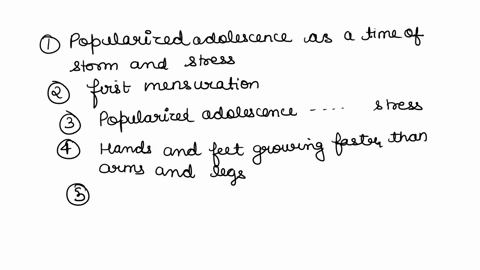 ① Popularized adolescence as a time of
storm and stress
② first mensuration
③ Popularized adolescence .... stress
④ Hands and feet growing faster than
arms and legs
⑤